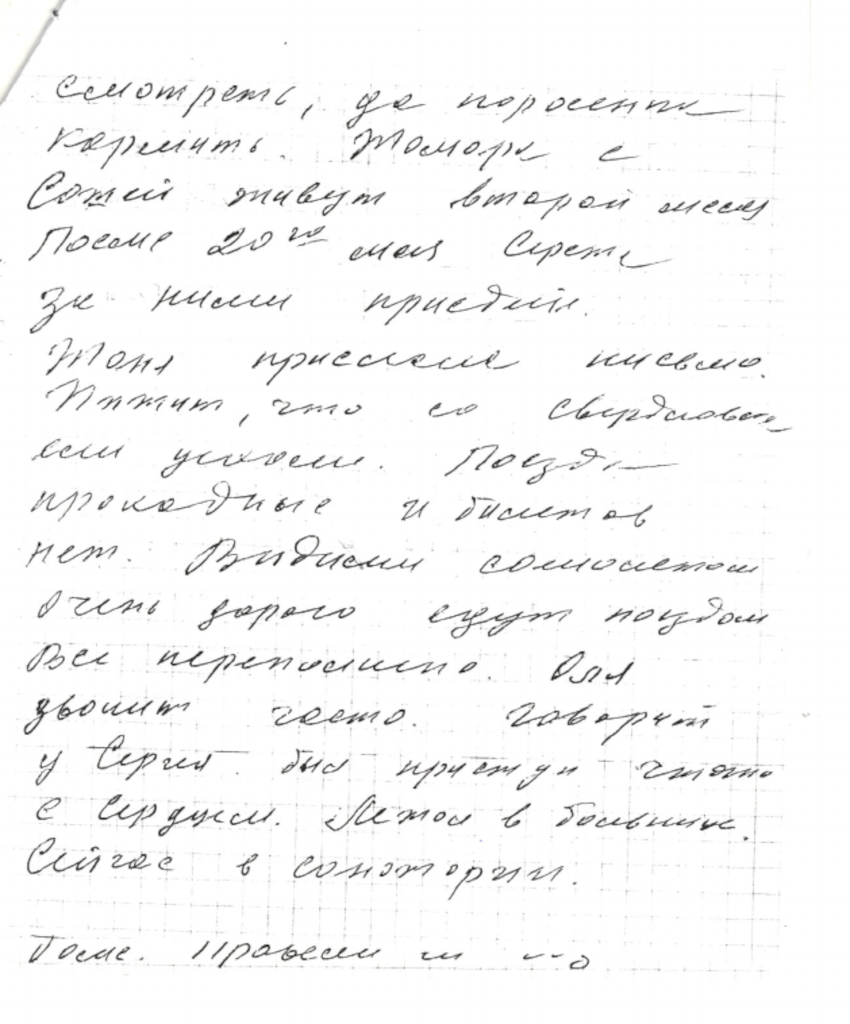 смотреть, да поросенка
кормить. Томара с
Сашей живут второй месяц
После 20го мая Сережа
за ними приедит.
Тоня прислала письмо.
Пишит, что со Свердловска
ели уехали. Поезда
проходные и билетов
нет. Видими самолетом
очень дорого едут поездом
Все переполнено. Оля
звонит часто. Говорит
у Сергея был приступ чтото
с Сердцем. Лежал в больнице.
Сейчас в санатории.